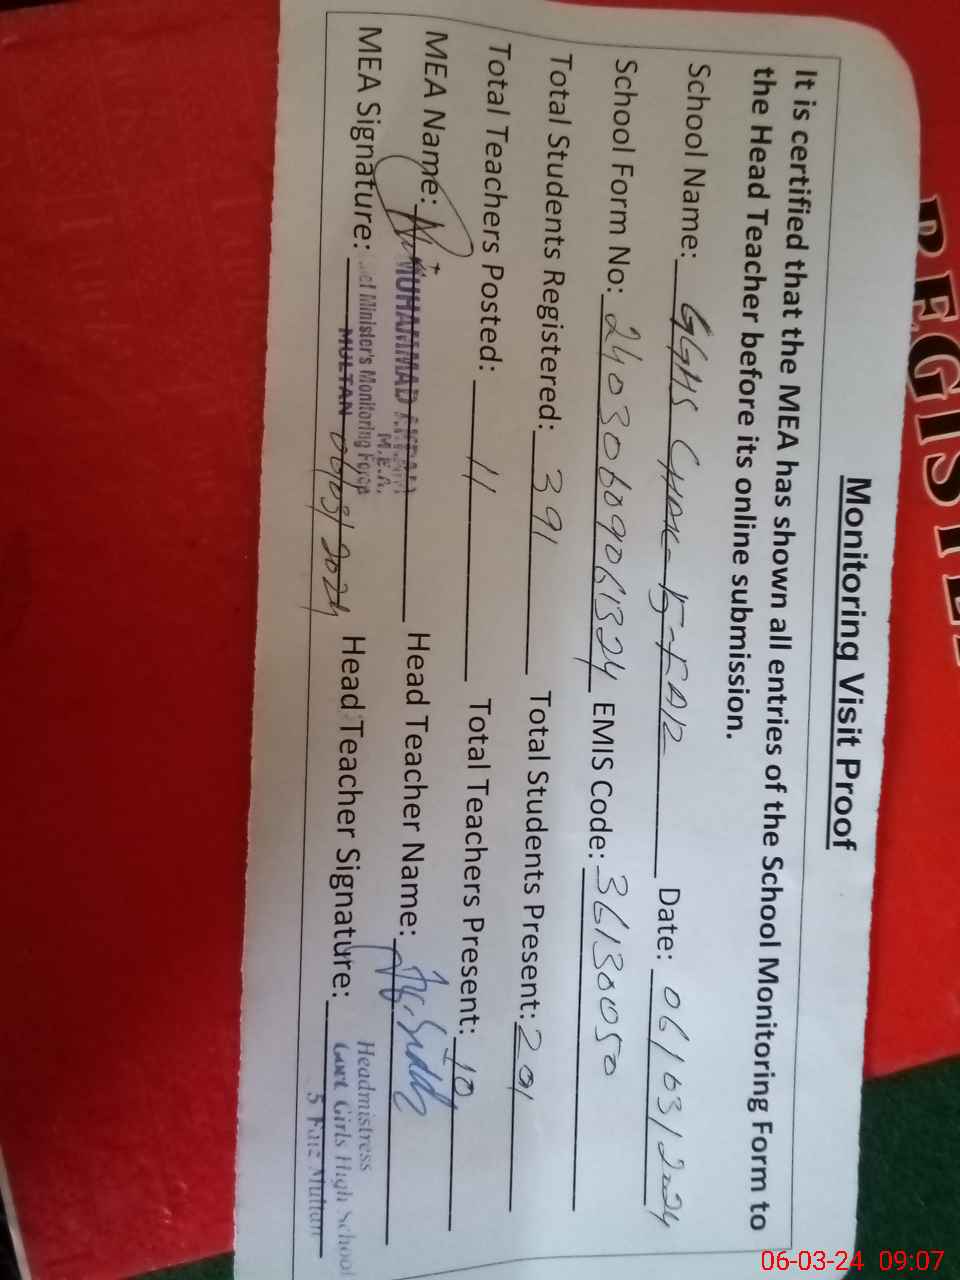 REGISTE
Monitoring Visit Proof
It is certified that the MEA has shown all entries of the School Monitoring Form to
the Head Teacher before its online submission.
School Name: GGHS CHAK-5-FAIZ Date: 06/03/2024
School Form No: 24030609061324 EMIS Code: 36130050
Total Students Registered: 391 Total Students Present: 201
Total Teachers Posted: 11 Total Teachers Present: 10
MEA Name: MUHAMMAD Head Teacher Name:
M.E.A.
MEA Signature: Minister's Monitoring Force Head Teacher Signature:
MULTAN 06/03/2024
Headmistress
Govt Girls High School
5 Faiz Multan
06-03-24 09:07